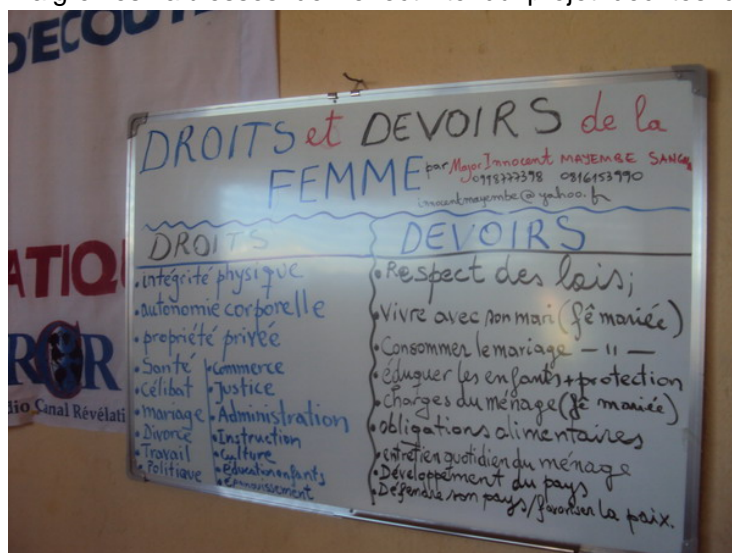 D'ECOUT
ATIQU
RCR
dio Canal Révélati
DROITS et DEVOIRS de la
FEMME par Major Innocent MAYEMBE SANG
0998777398 0816153990
innocentmayembe@yahoo.fr
DROITS
• intégrité physique
• autonomie corporelle
• propriété privée
• Santé
• célibat
• mariage
• Divorce
• Travail
• Politique
• Commerce
• Justice
• Administration
• Instruction
• Culture
• éducation enfants
• épanouissement
DEVOIRS
• Respect des lois;
• Vivre avec son mari (fê mariée)
• Consommer le mariage — " —
• éduquer les enfants + protection
• charges du ménage (fê mariée)
• obligations alimentaires
• entretien quotidien du ménage
• Développement du pays
• Défendre son pays/favoriser la paix.